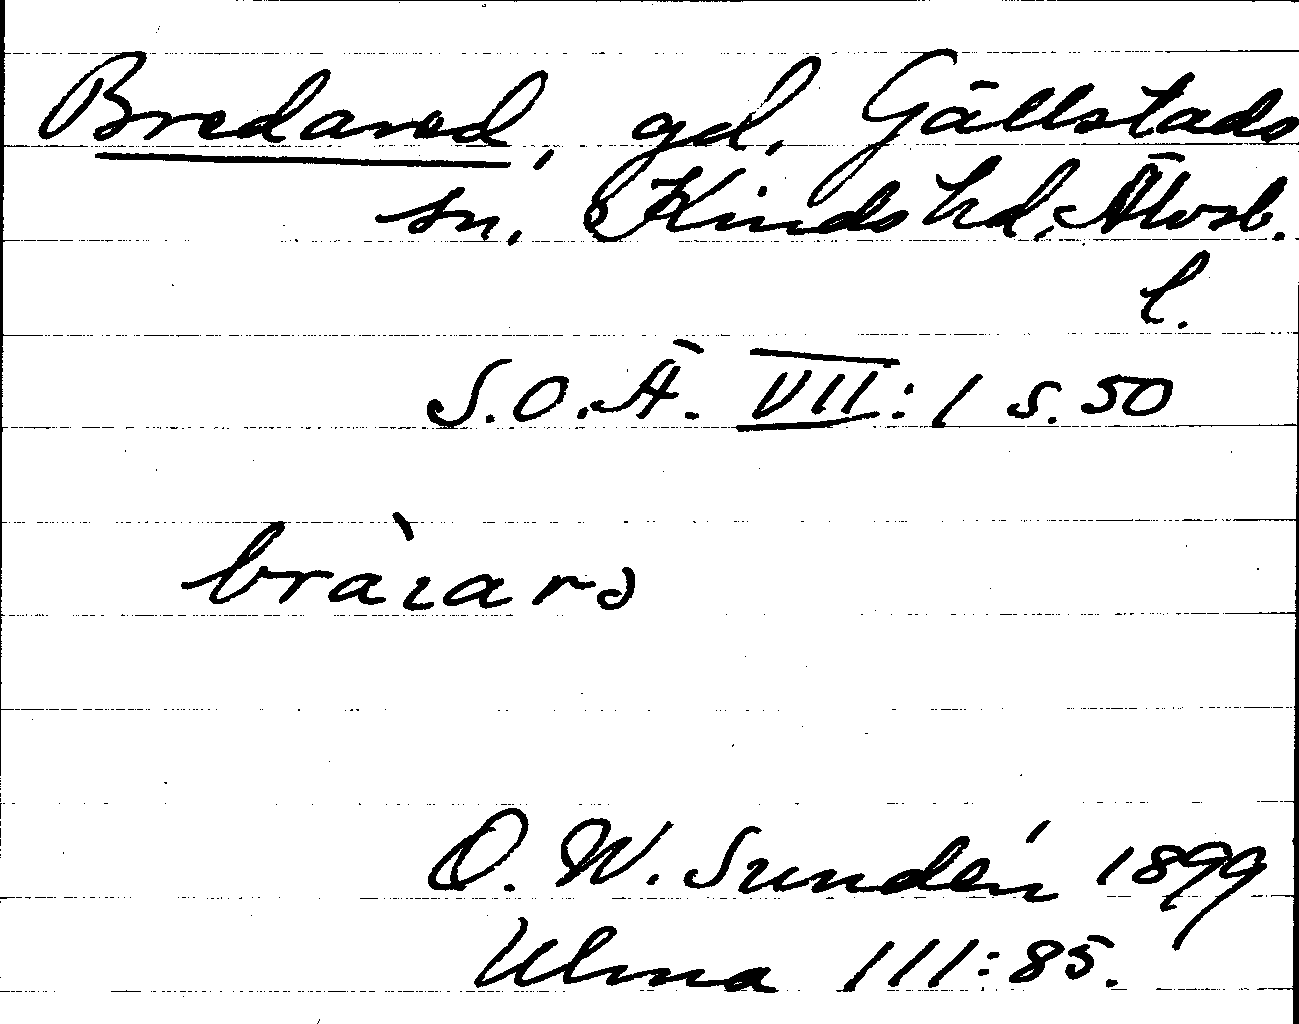 Bredared, gd, Gällstads
sn, Kinds hd, Älvsb.
l.
S.O.Ä. VII:1 s. 50
O. W. Sundén 1899
Ulma 111:85.